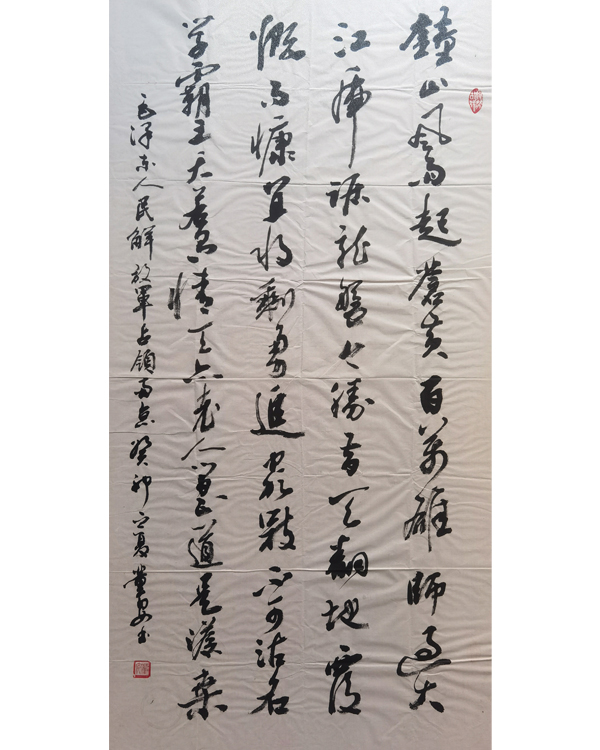 鐘山風雨起蒼黄百萬雄師過大
江虎踞龍盤今勝昔天翻地覆
慨而慷宜将剩勇追窮寇不可沽名
学霸王天若有情天亦老人間正道是滄桑
毛泽东人民解放軍占領南京癸卯之夏董書